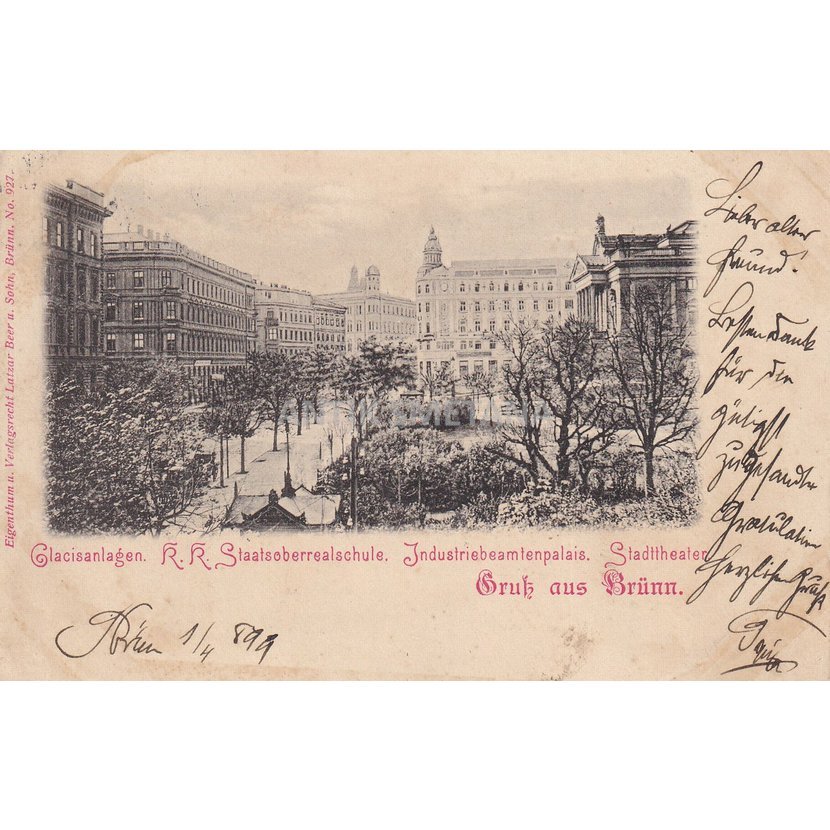 Eigenthum u. Verlagsrecht Latzar Beer u. Sohn, Brünn. No. 927.
Lieber alter
Freund!
Besten Dank
für die
gütigst
zugesandte
Gratulation
Herzlichen Gruß
Glacisanlagen. K. K. Staatsoberrealschule. Industriebeamtenpalais. Stadttheater.
Gruß aus Brünn.
Brünn 1/4 899